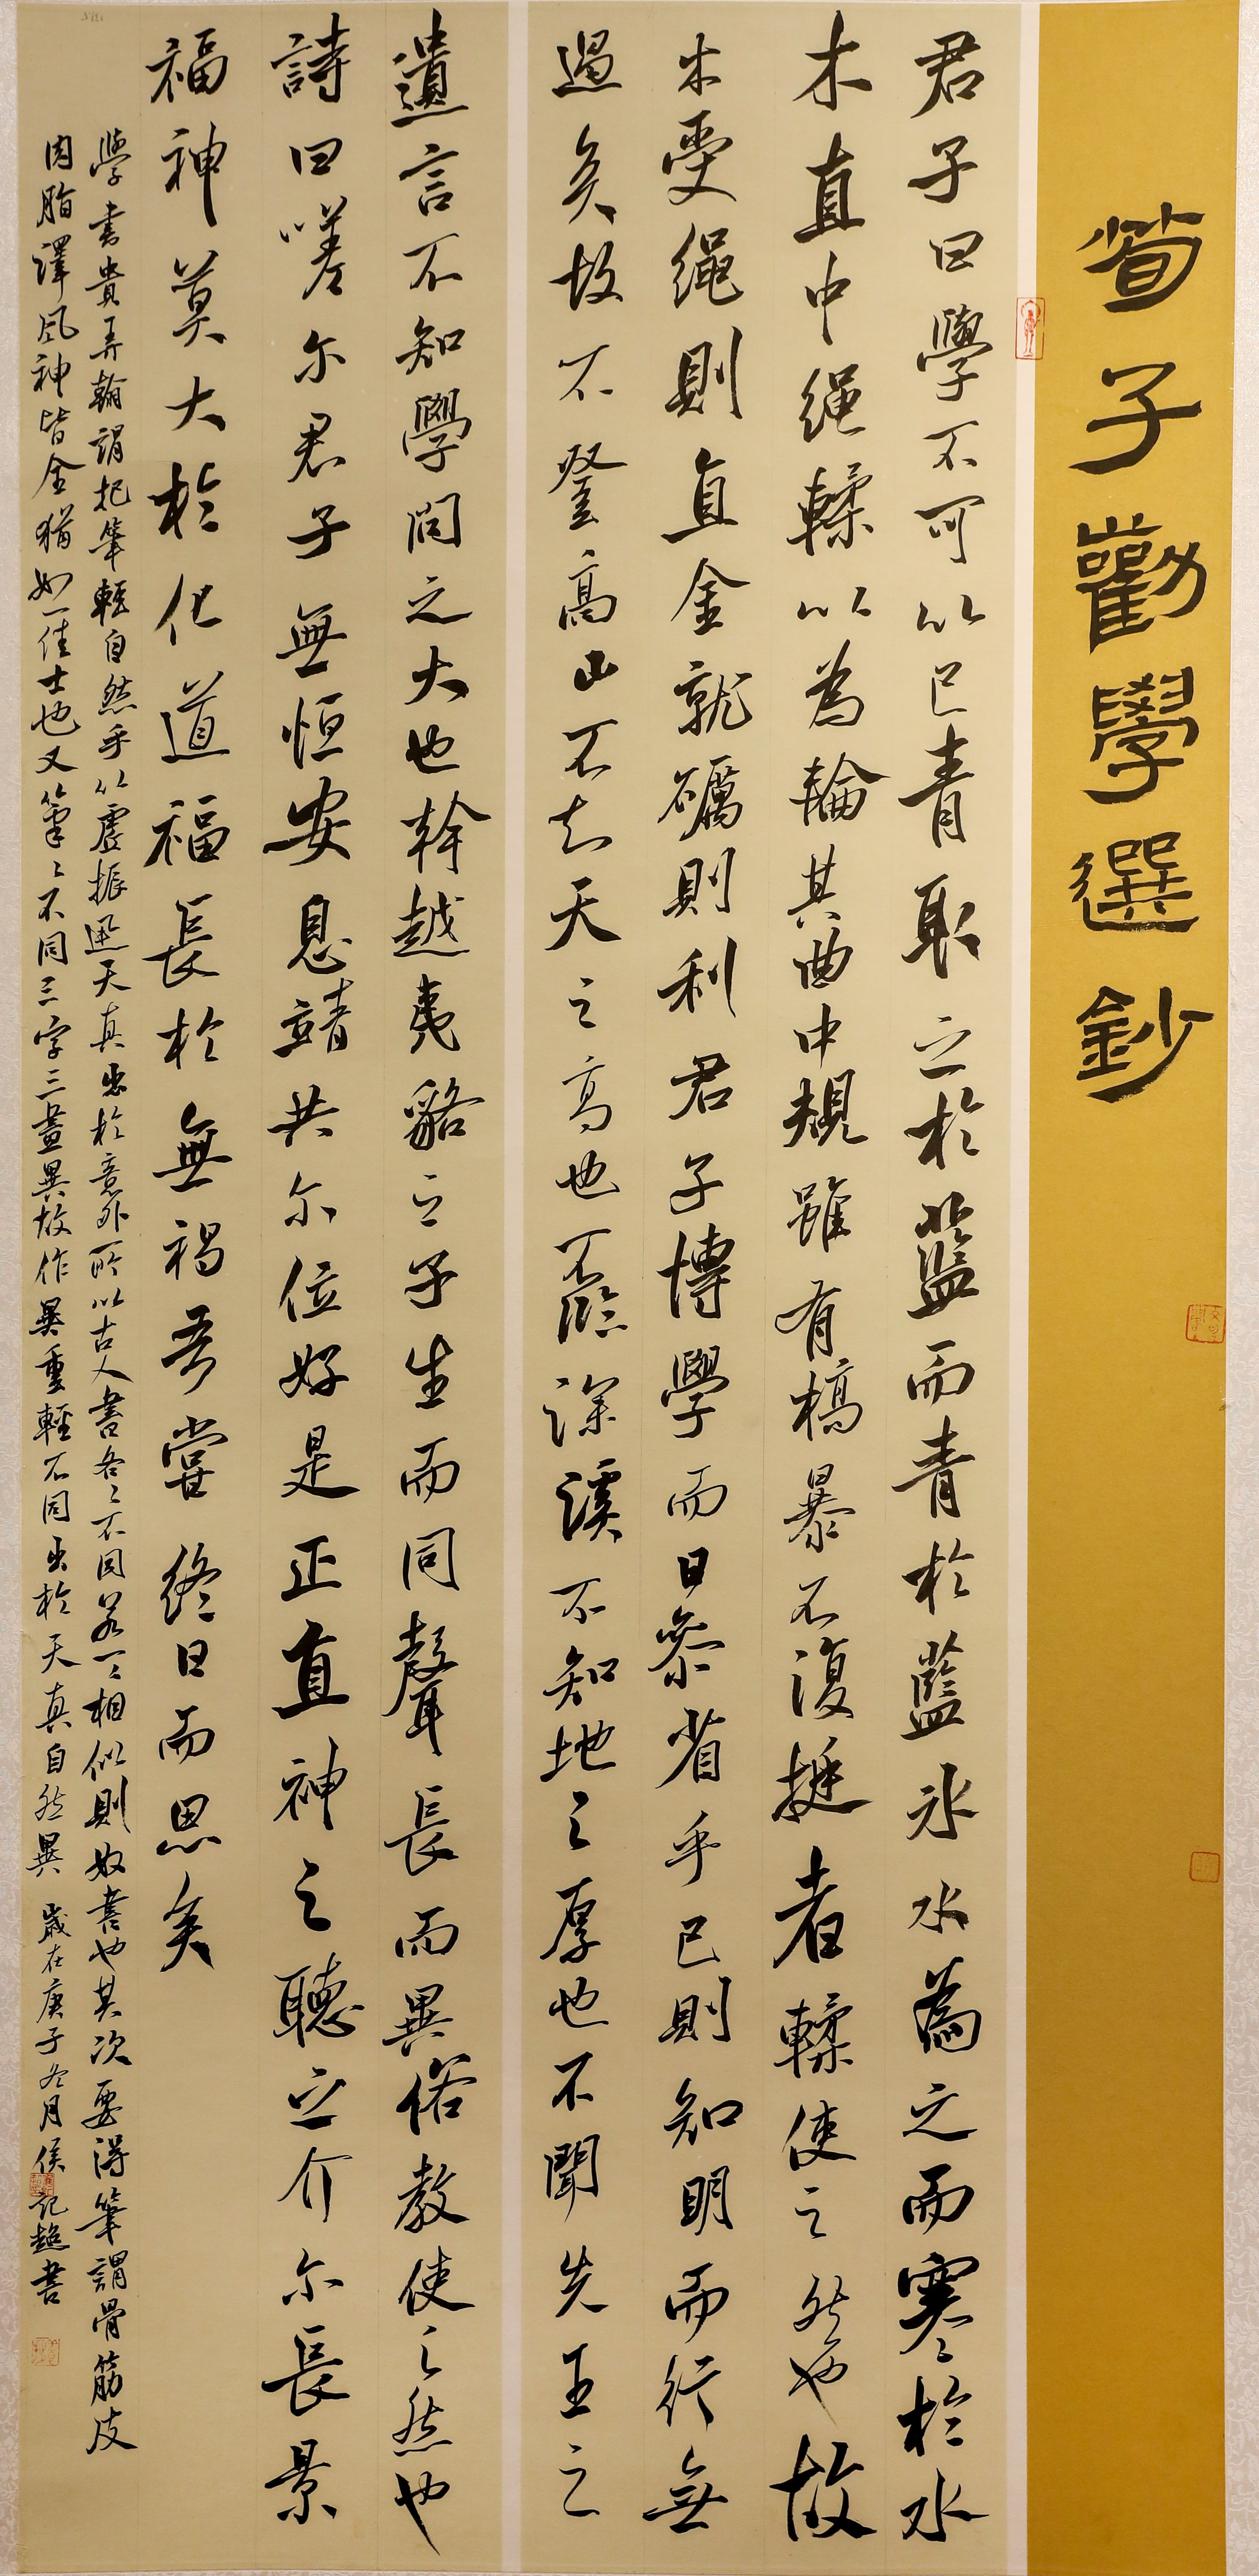 荀子勸學選鈔
君子曰學不可以已青取之於藍而青於藍冰水為之而寒於水
木直中繩輮以為輪其曲中規雖有槁暴不復挺者輮使之然也故
木受繩則直金就礪則利君子博學而日參省乎己則知明而行無
過矣故不登高山不知天之高也不臨深溪不知地之厚也不聞先王之
遺言不知學問之大也幹越夷貉之子生而同聲長而異俗教使之然也
詩曰嗟爾君子無恒安息靖共爾位好是正直神之聽之介爾長景
福神莫大於化道福長於無禍吾嘗終日而思矣
學書貴弄翰謂把筆輕自然手心虛振迅天真出於意外所以古人書各各不同若一一相似則奴書也其次要得筆謂骨筋皮
肉脂澤風神皆全猶如一佳士也又筆筆不同三字三畫異故作異重輕不同出於天真自然異 歲在庚子冬月侯記超書